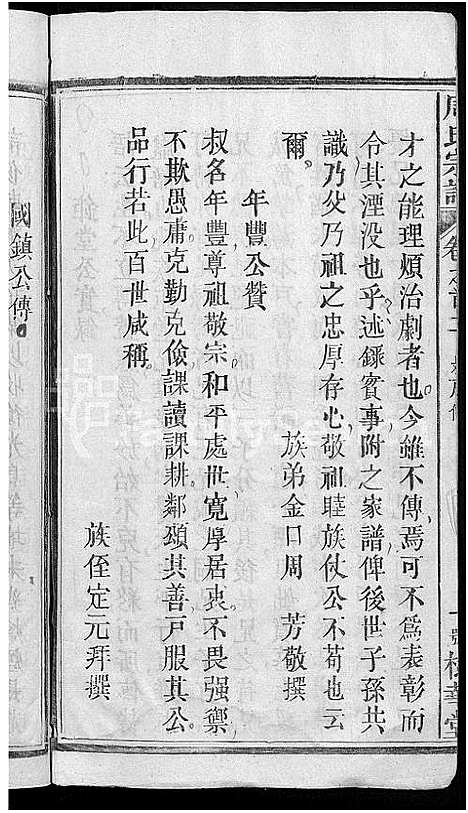 周氏宗譜
卷之首二
才之能理煩治劇者也今雖不傳焉可不為表彰而
令其湮没也乎述錄賓事附之家譜俾後世子孫共
識乃父乃祖之忠厚存心敬祖睦族仗公不苟也云
爾
族弟金口周　芳敬撰
年豐公贊
叔名年豐尊祖敬宗和平處世寬厚居衷不畏强禦
不欺愚庸克勤克儉課讀課耕鄰頌其善戸服其公
品行若此百世咸稱
族侄定元拜撰
國鎮公傳